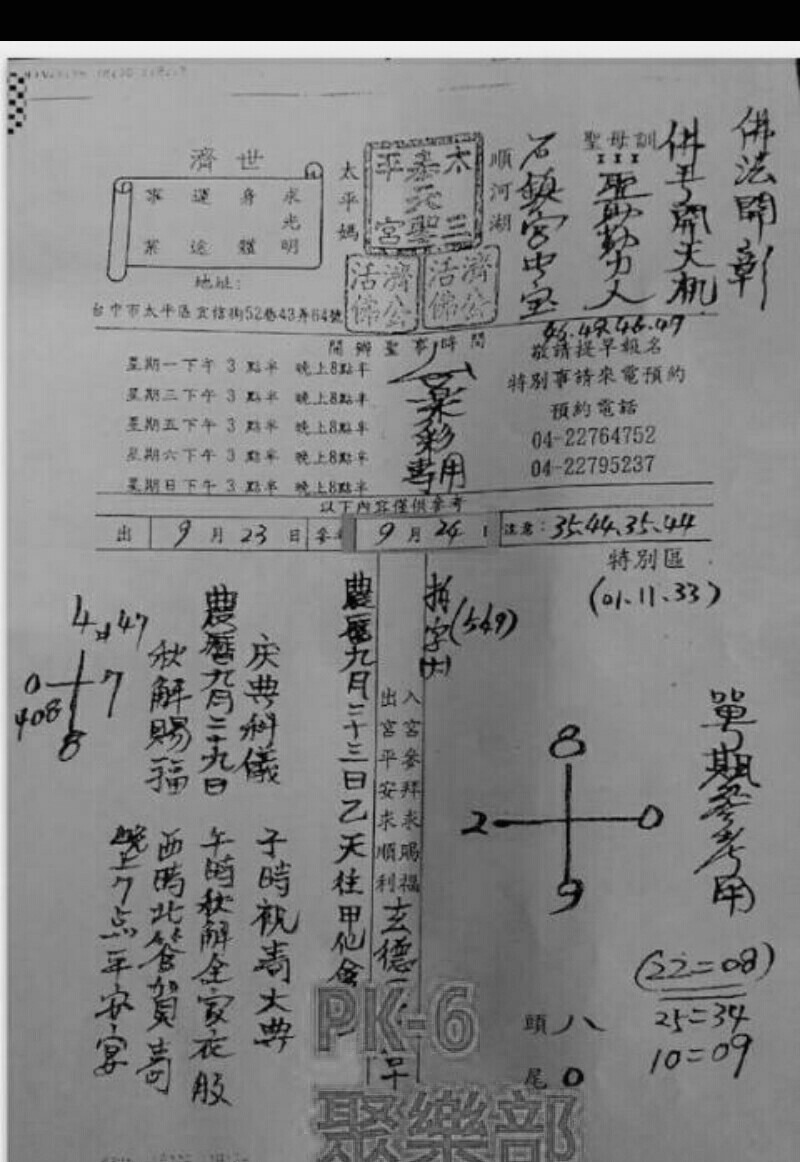 佛法開彰
佛手開天机
聖母訓
聖助勤力人
石鎮宮中宝
46.49.46.49
順河湖
太三
慕元聖
平宮
太平媽
濟公活佛
濟公活佛
濟世
求身運事
光
明體途業
地址:
台中市太平區宜信街52巷43弄64號
開辦聖事時間
星期一下午 3 點半 晚上8點半
星期三下午 3 點半 晚上8點半
星期五下午 3 點半 晚上8點半
星期六下午 3 點半 晚上8點半
星期日下午 3 點半 晚上8點半
六合彩專用
敬請提早報名
特別事請來電預約
預約電話
04-22764752
04-22795237
以下內容僅供參考
出 9 月 23 日 參考 9 月 24 日
注意:35.44.35.44
特別區
(01.11.33)
單期參考用
8
2 0
9
(22=08)
25=34
10=09
頭 八
尾 0
拆字(569)
入宮參拜求賜福
出宮平安求順利
玄德
農曆九月二十三日乙天往甲他
庆典科儀
農曆九月二十九日
秋解賜福
子時祝壽大典
午時秋解全家衣服
酉時北管賀壽
晚上7点平安宴
4 47
0 7
408
8
PK-6
聚樂部